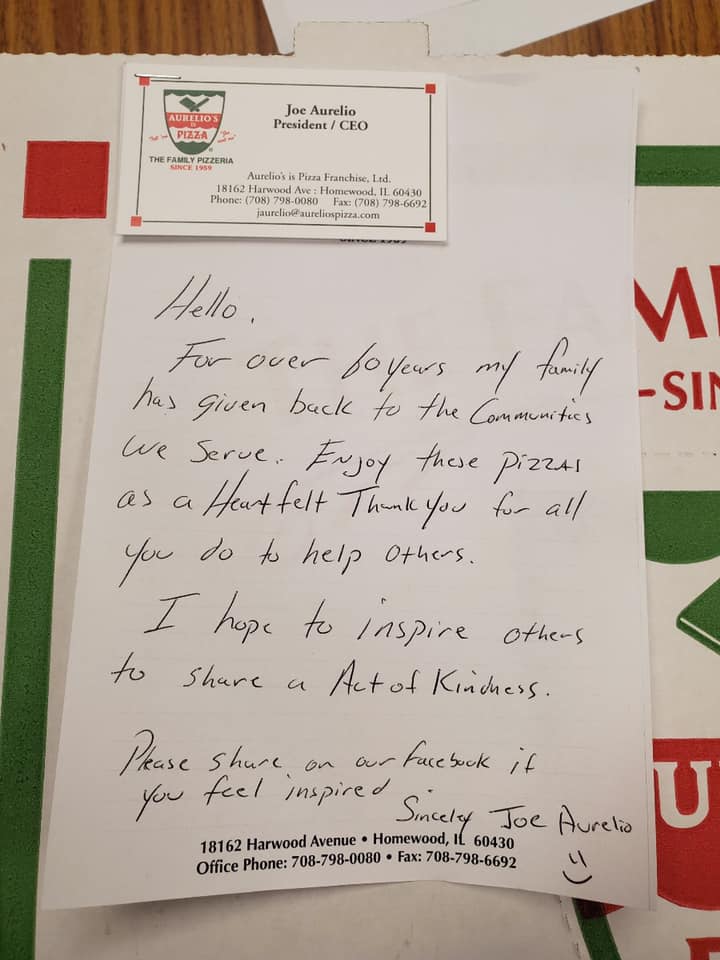 AURELIO'S
IS
PIZZA
THE FAMILY PIZZERIA
SINCE 1959
Joe Aurelio
President / CEO
Aurelio's is Pizza Franchise, Ltd.
18162 Harwood Ave : Homewood, IL 60430
Phone: (708) 798-0080 Fax: (708) 798-6692
jaurelio@aureliospizza.com
SINCE 1959
Hello,
For over 60 years my family
has given back to the Communities
We Serve. Enjoy these Pizzas
as a Heartfelt Thank You for all
you do to help others.
I hope to inspire others
to share a Act of Kindness.
Please share on our Facebook if
you feel inspired
Sincely Joe Aurelio
18162 Harwood Avenue • Homewood, IL 60430
Office Phone: 708-798-0080 • Fax: 708-798-6692